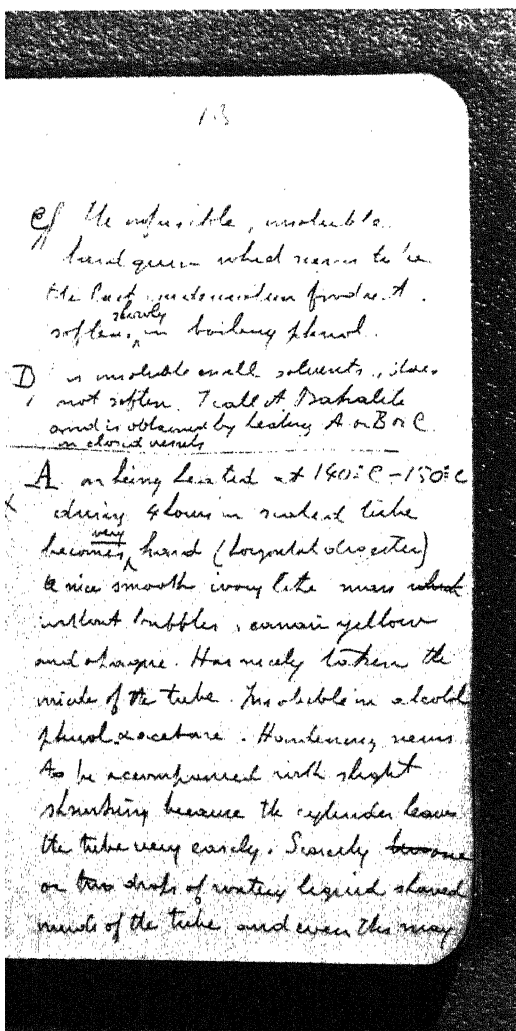 13
C) the infusible, insoluble
hard gum which seems to be
the last condensation product.
softens slowly in boiling phenol.
D, is insoluble in all solvents, does
not soften. I call it Bakalite
and is obtained by heating A or B or C
in closed vessels
A on being heated at 140°C - 150°C
x during 4 hours in sealed tube
becomes very hard (horizontal digester)
a nice smooth ivory like mass which
without bubbles, canari yellow
and opaque. Has nicely taken the
inside of the tube. Insoluble in alcohol
phenol or acetone. Hardening seems
to be accompanied with slight
shrinking because the cylinder leaves
the tube very easily. Scarcely one
or two drops of watery liquid showed
inside of the tube and even this may